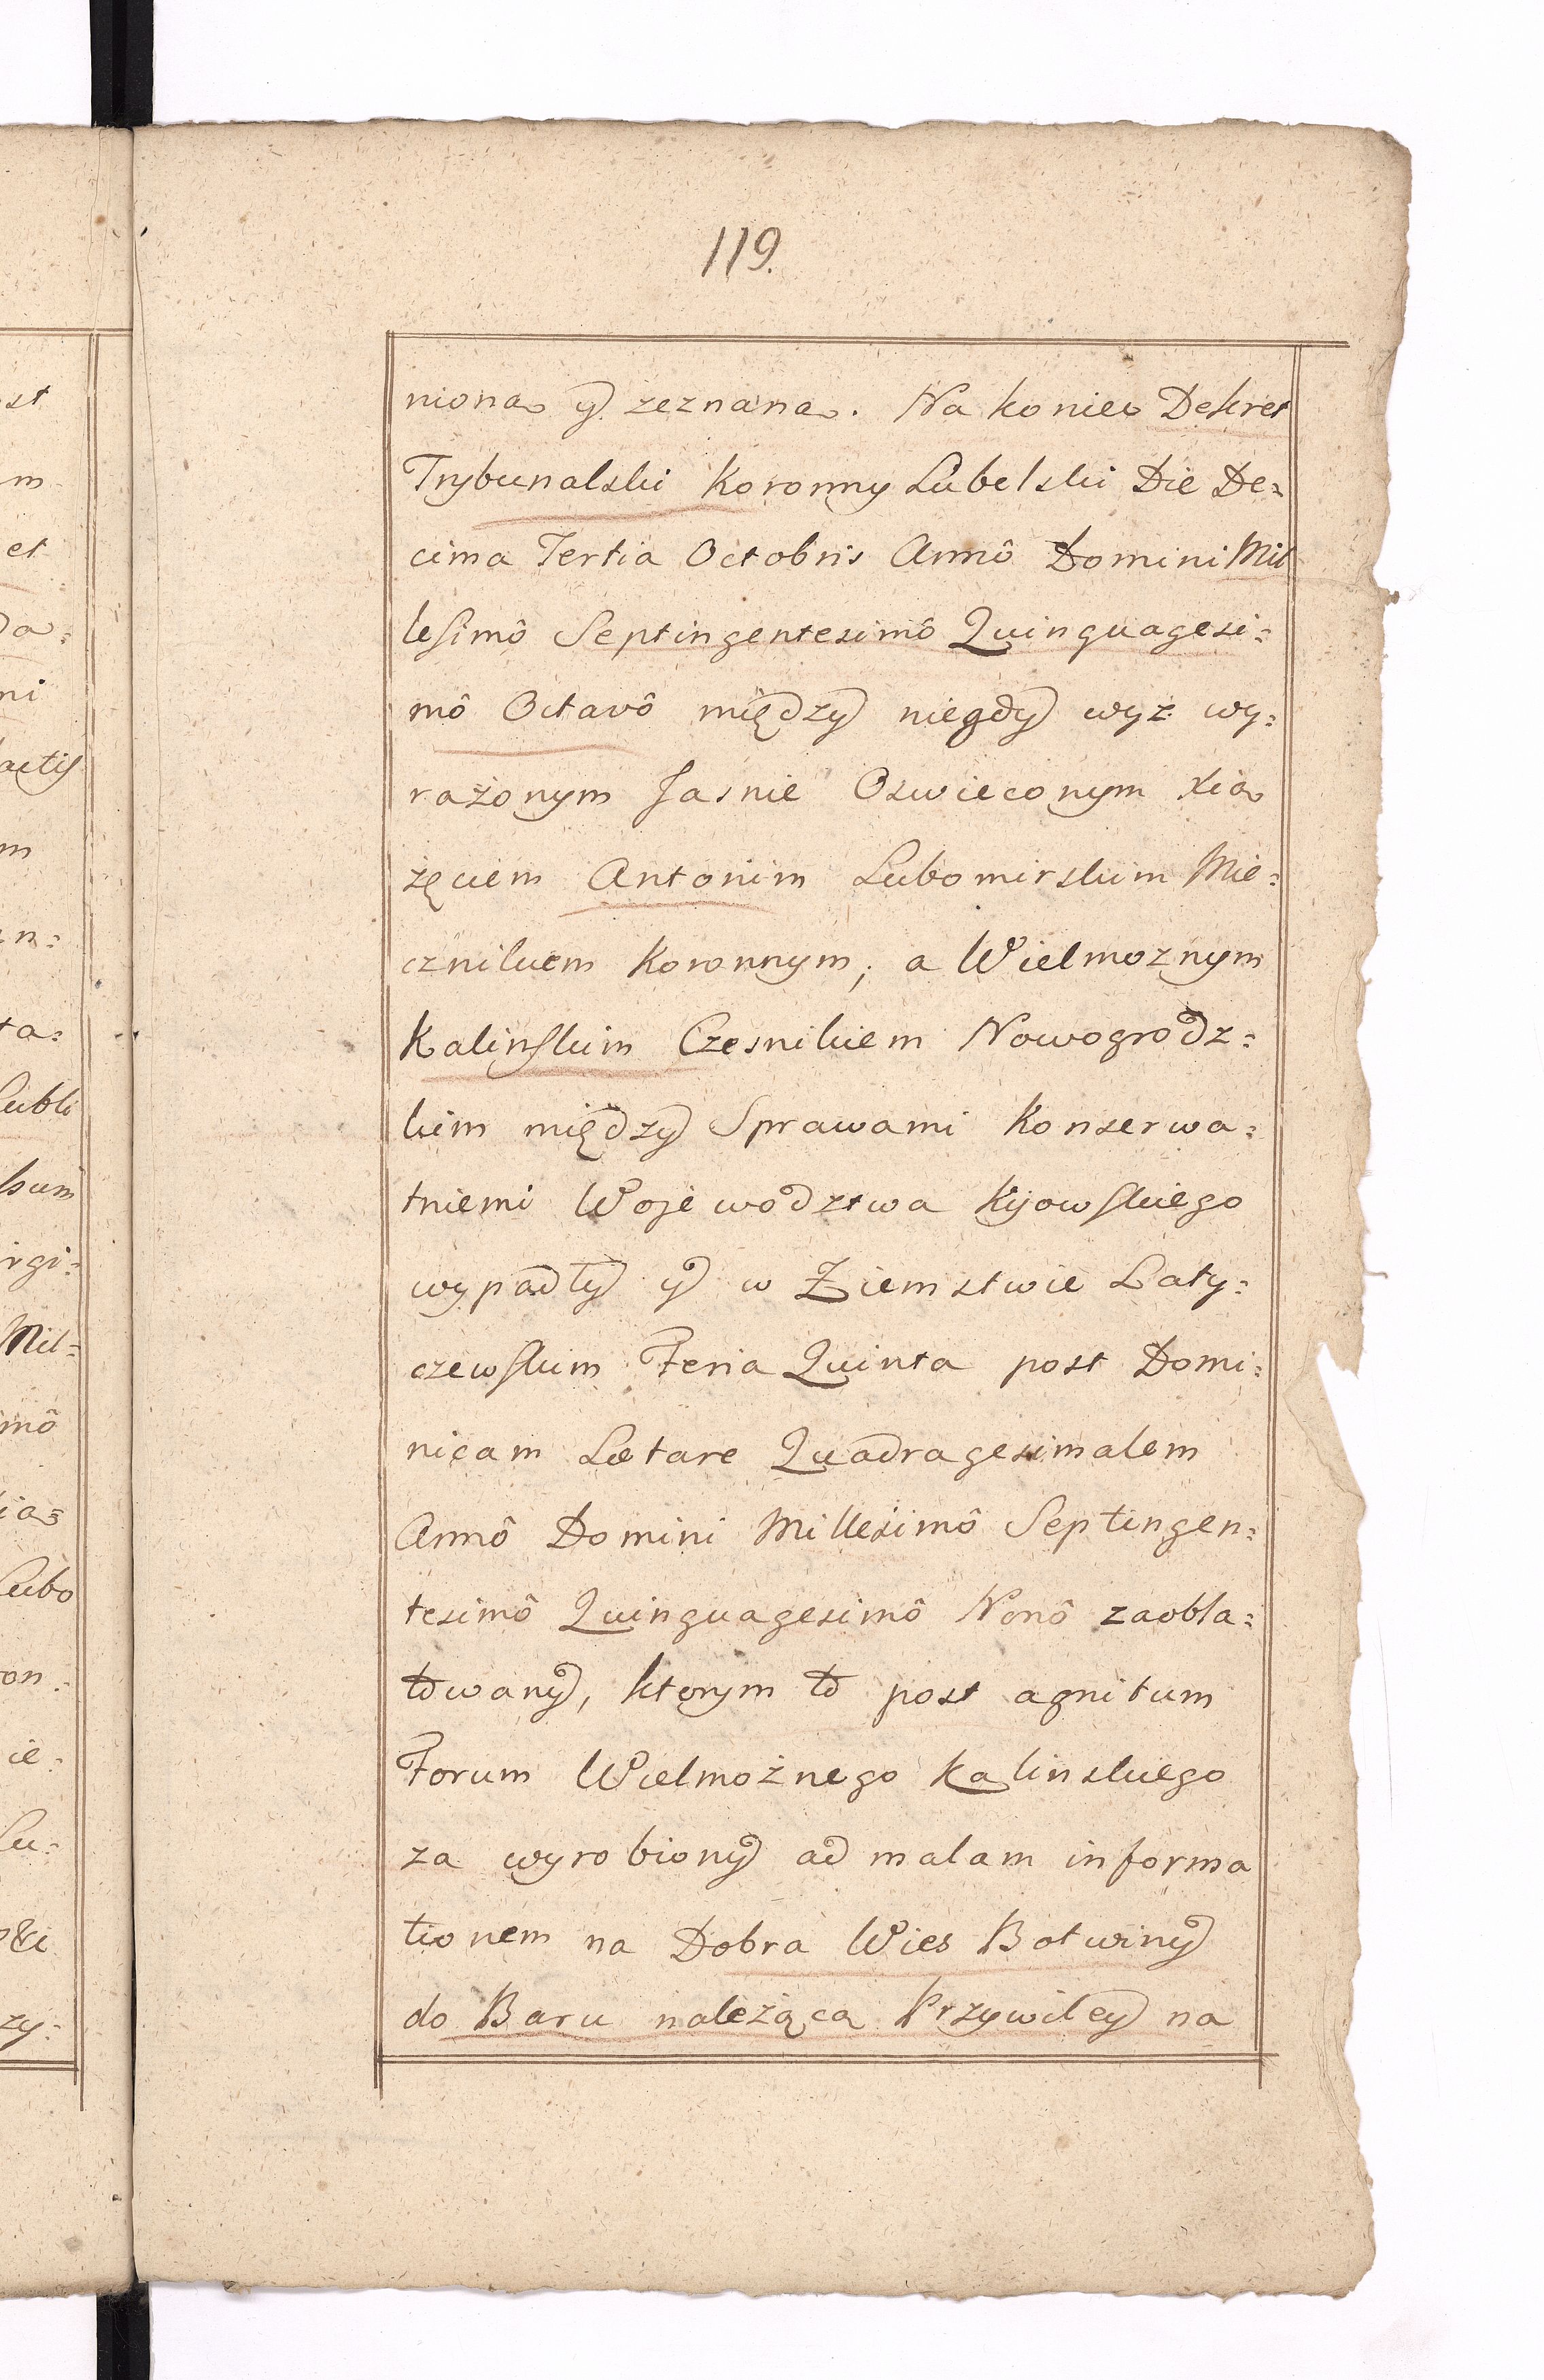 119.
niona y zeznana. Na koniec Dekret
Trybunalski Koronny Lubelski Die De=
cima Tertia Octobris Annô Domini Mil
lesimô Septingentesimô Quinquagesi=
mô Octavô między niegdy wyż wy=
rażonym Jasnie Oswieconym Xią
żęciem Antonim Lubomirskim Mie=
cznikiem Koronnym; a Wielmoznym
Kalinskim Czesnikiem Nowogrodz=
kim między Sprawami Konserwa=
tniemi Wojewodztwa Kijowskiego
wypadły y w Ziemstwie Laty=
czewskim Feria Quinta post Domi=
nicam Lætare Quadragesimalem
Annô Domini Millesimô Septingen=
tesimô Quinquagesimô Nonô zaobla=
towany, ktorym to post agnitum
Forum Wielmożnego Kalinskiego
za wyrobiony ad malam informa
tionem na Dobra Wies Botwiny
do Baru należącą Przywiley na
st
m
et
da=
ni
actis
m
n=
ta=
Lubli
skum
irgi=
Mil=
imô
ia=
Lubo
on=
ie=
Lu=
ski
zy=